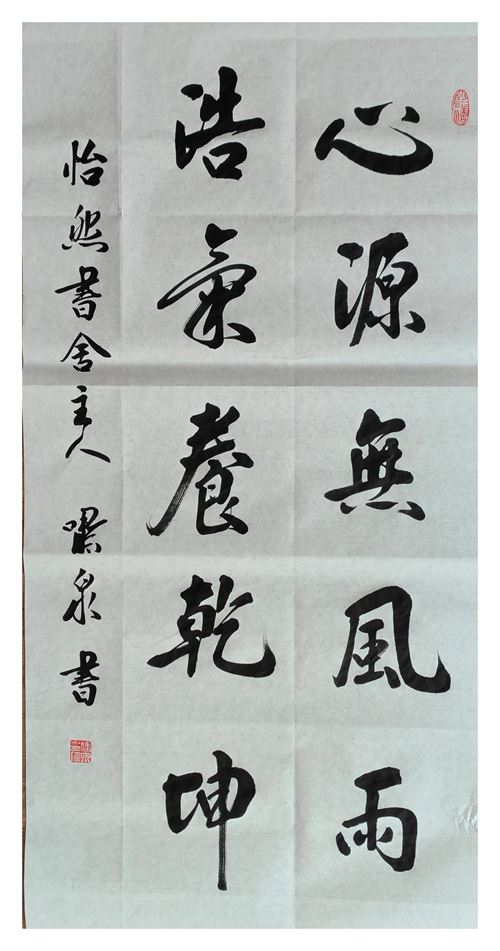 心源無風雨
浩氣養乾坤
怡然書舍主人 墨泉書